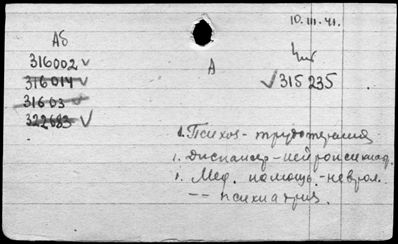 10.III.41.
Аб
316002 ✓
316014 ✓
31603
322683 ✓
А
Чит
✓ 315235
1. Психоз - трудотерапия
1. Диспансер - нейропсихиад.
1. Мед. помощь - неврол.
-- психиатрия.